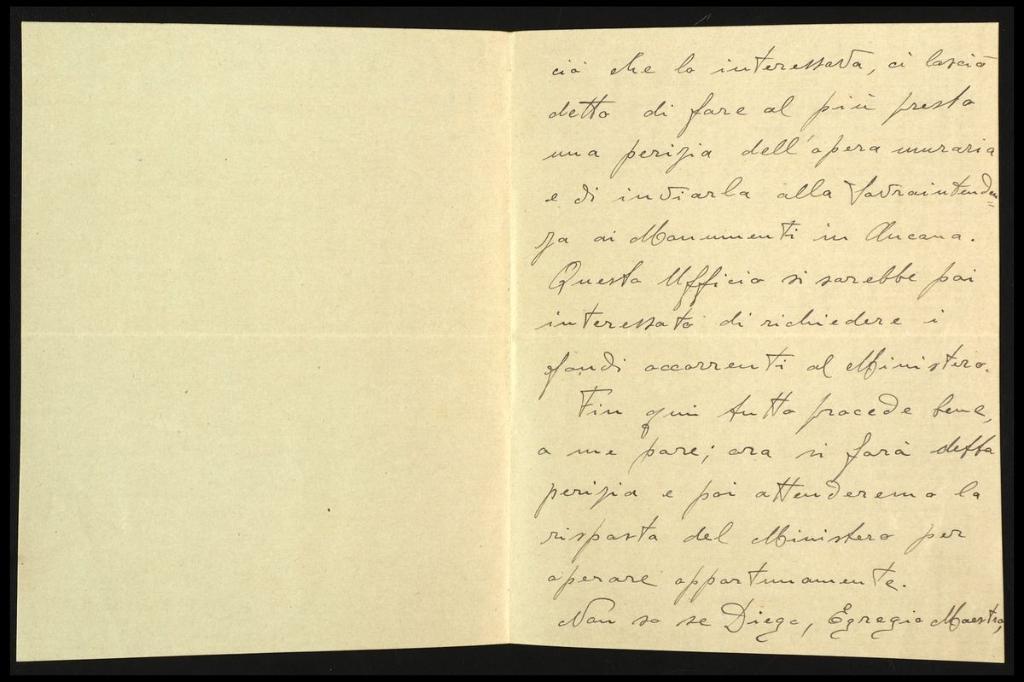 ciò che lo interessava, ci lasciò
detto di fare al più presto
una perizia dell'opera muraria
e di inviarla alla Sovraintenden=
za ai Monumenti in Ancona.
Questo Ufficio si sarebbe poi
interessato di richiedere i
fondi occorrenti al Ministero.
Fin qui tutto procede bene,
a me pare; ora si farà detta
perizia e poi attenderemo la
risposta del Ministero per
operare opportunamente.
Non so se Diego, Egregio Maestro,